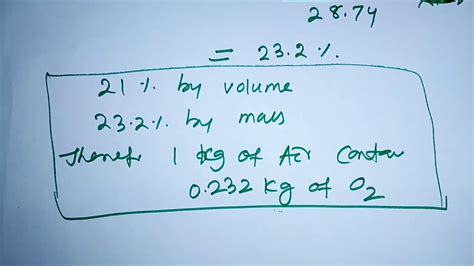 28.74
= 23.2%
21% by volume
23.2% by mass
1 kg of Air
0.232 kg of O2